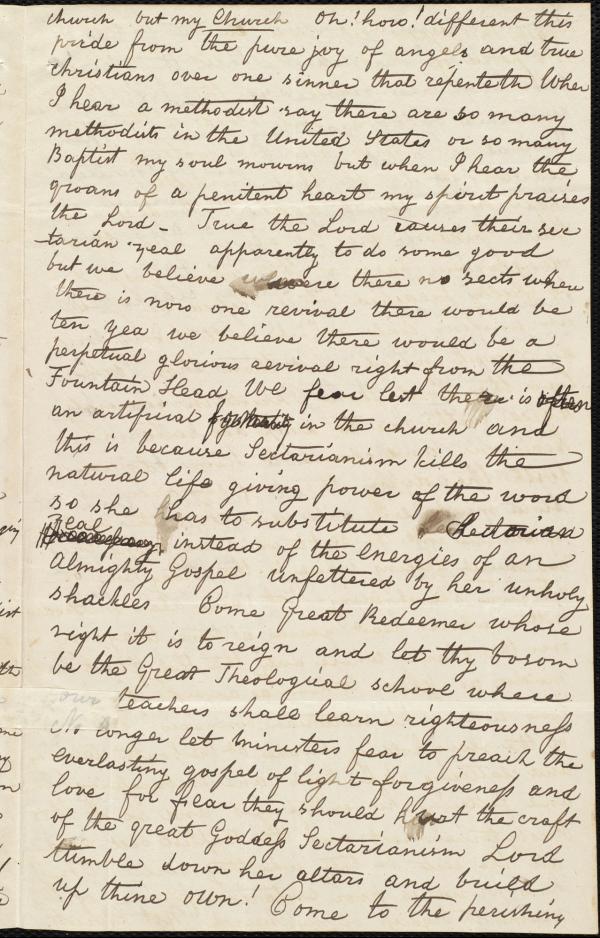 church but my Church Oh! how! different this
pride from the pure joy of angels and true
christians over one sinner that repenteth When
I hear a methodist say there are so many
methodists in the United States or so many
Baptist my soul mourns but when I hear the
groans of a penitent heart my spirit praises
the Lord - True the Lord causes their sec
tarian zeal apparently to do some good
but we believe were there no sects where
there is now one revival there would be
ten yea we believe there would be a
perpetual glorious revival right from the
Fountain Head We fear lest there is often
an artificial in the church and
this is because Sectarianism kills the
natural life giving power of the word
so she has to substitute Sectarian
zeal instead of the Energies of an
Almighty Gospel unfettered by her unholy
shackles Come Great Redeemer whose
right it is to reign and let thy bosom
be the Great Theological school where
our teachers shall learn righteousness
No longer let ministers fear to preach the
everlasting gospel of light forgiveness and
love for fear they should hurt the craft
of the great Goddess Sectarianism Lord
tumble down her altars and build
up thine own! Come to the perishing